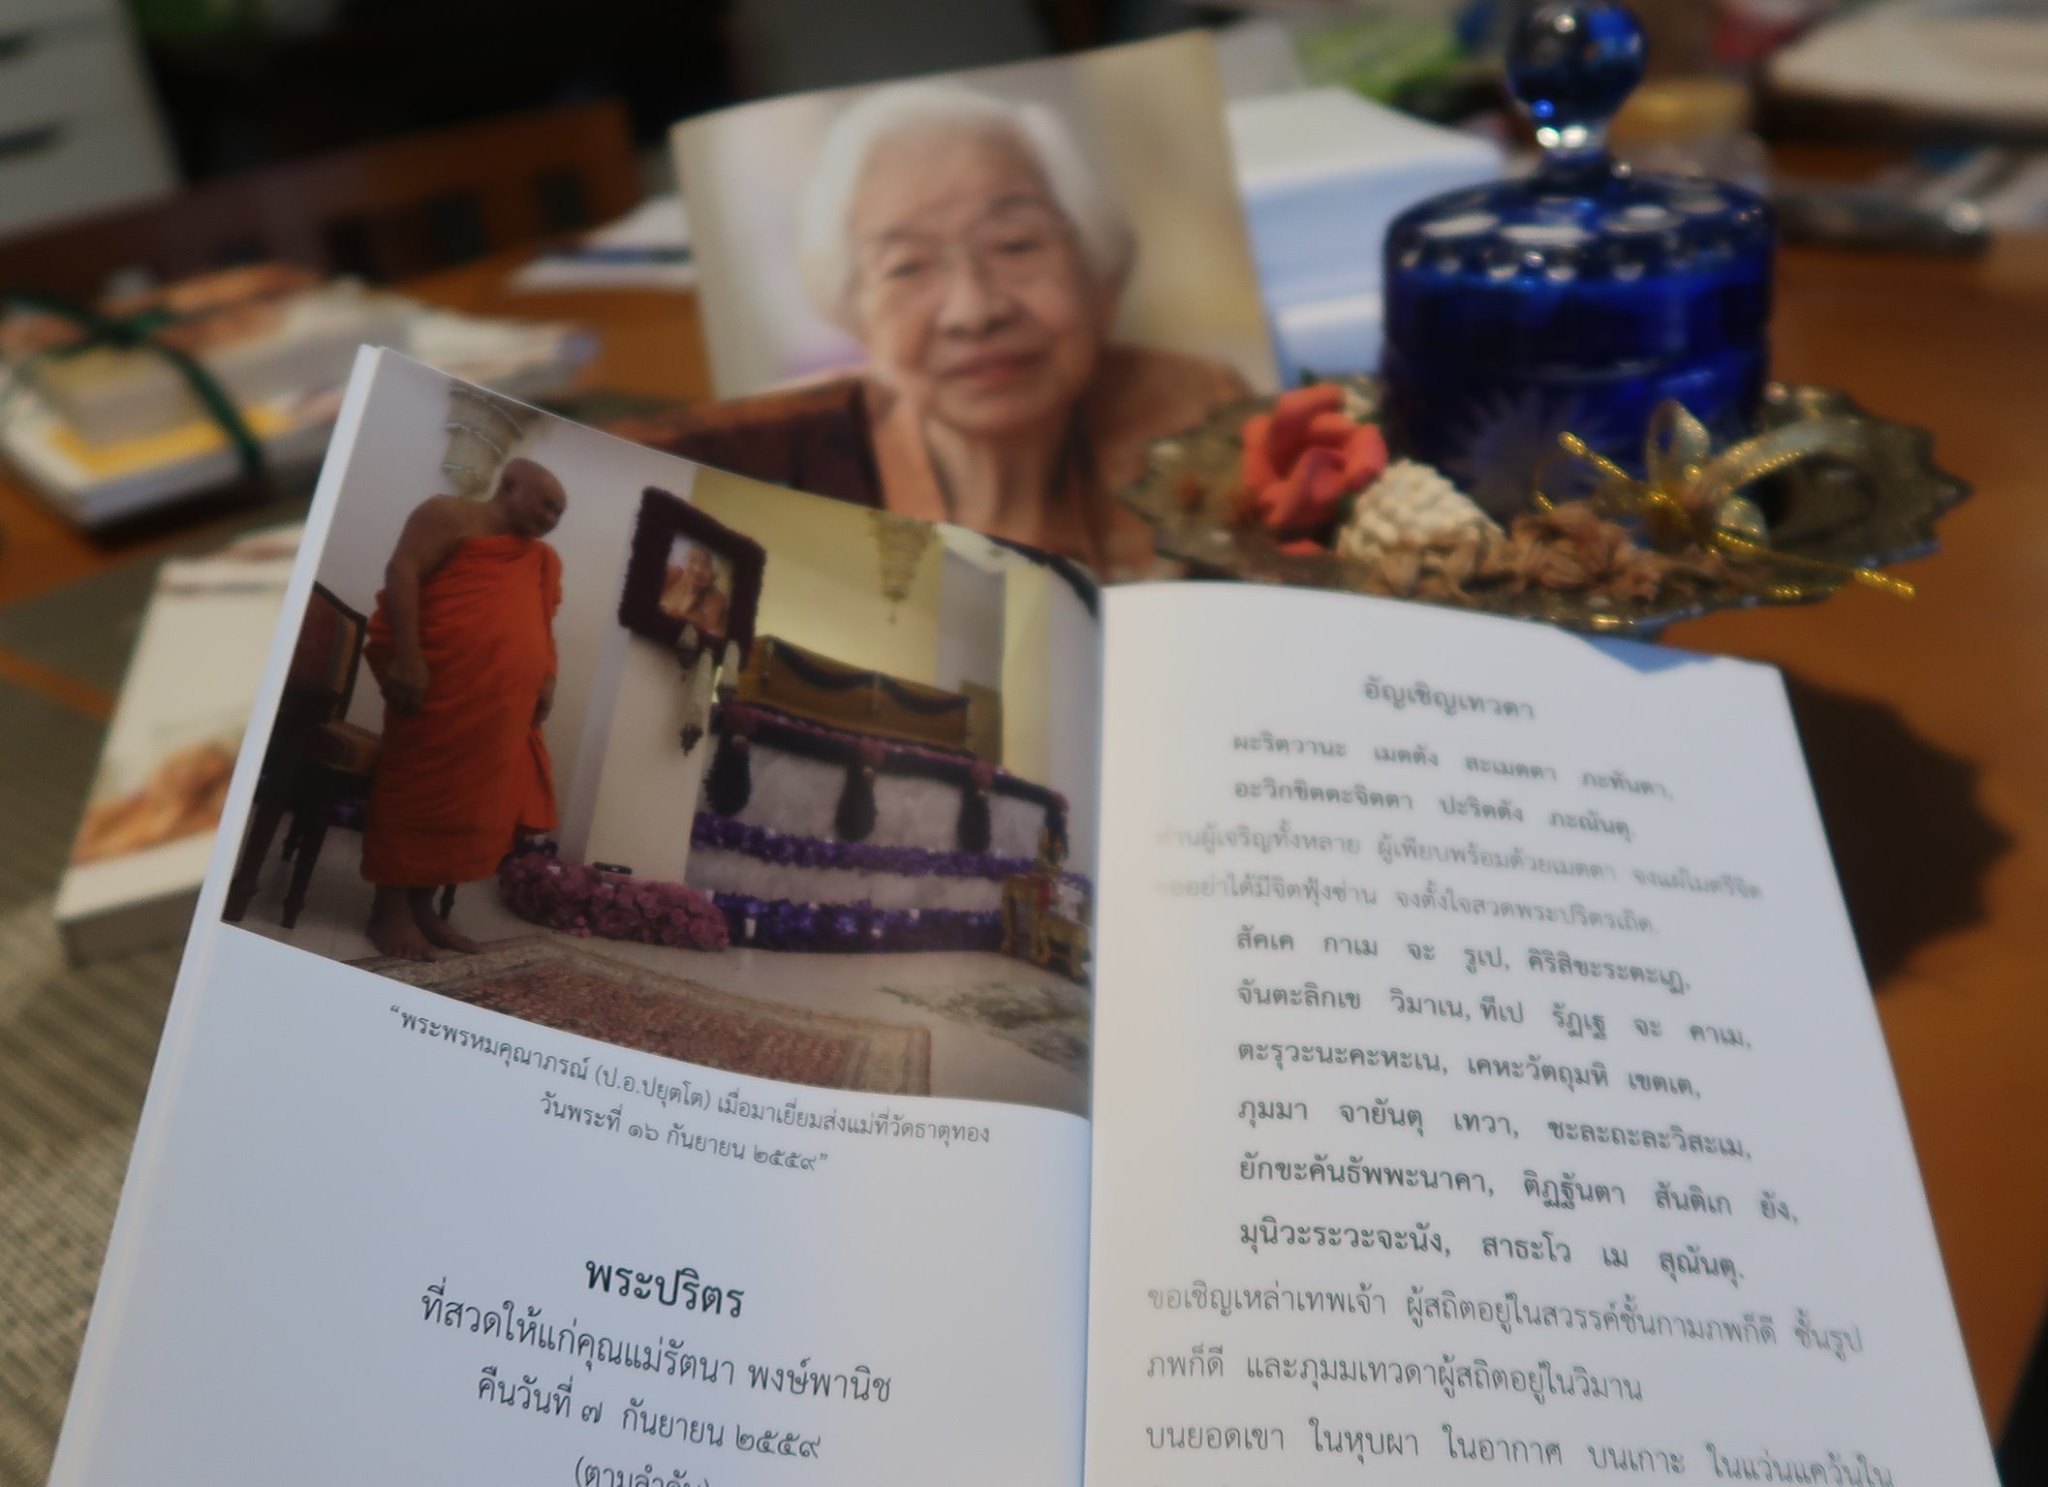 "พระพรหมคุณาภรณ์ (ป.อ.ปยุตโต) เมื่อมาเยี่ยมส่งแม่ที่วัดธาตุทอง
วันพระที่ ๑๖ กันยายน ๒๕๕๙"
พระปริตร
ที่สวดให้แก่คุณแม่รัตนา พงษ์พานิช
คืนวันที่ ๗ กันยายน ๒๕๕๙
(ตามลำดับ)
อัญเชิญเทวดา
ผะริตวานะ เมตตัง สะเมตตา ภะทันตา,
อะวิกขิตตะจิตตา ปะริตตัง ภะณันตุ.
ท่านผู้เจริญทั้งหลาย ผู้เพียบพร้อมด้วยเมตตา จงแผ่เมตรีจิต
ขออย่าได้มีจิตฟุ้งซ่าน จงตั้งใจสวดพระปริตรเถิด.
สัคเค กาเม จะ รูเป, คิริสิขะระตะเฏ,
จันตะลิกเข วิมาเน, ทีเป รัฏเฐ จะ คาเม,
ตะรุวะนะคะหะเน, เคหะวัตถุมหิ เขตเต,
ภุมมา จายันตุ เทวา, ชะละถะละวิสะเม,
ยักขะคันธัพพะนาคา, ติฏฐันตา สันติเก ยัง,
มุนิวะระวะจะนัง, สาธะโว เม สุณันตุ.
ขอเชิญเหล่าเทพเจ้า ผู้สถิตอยู่ในสวรรค์ชั้นกามภพก็ดี ชั้นรูป
ภพก็ดี และภุมมเทวดาผู้สถิตอยู่ในวิมาน
บนยอดเขา ในหุบผา ในอากาศ บนเกาะ ในแว่นแคว้นใน